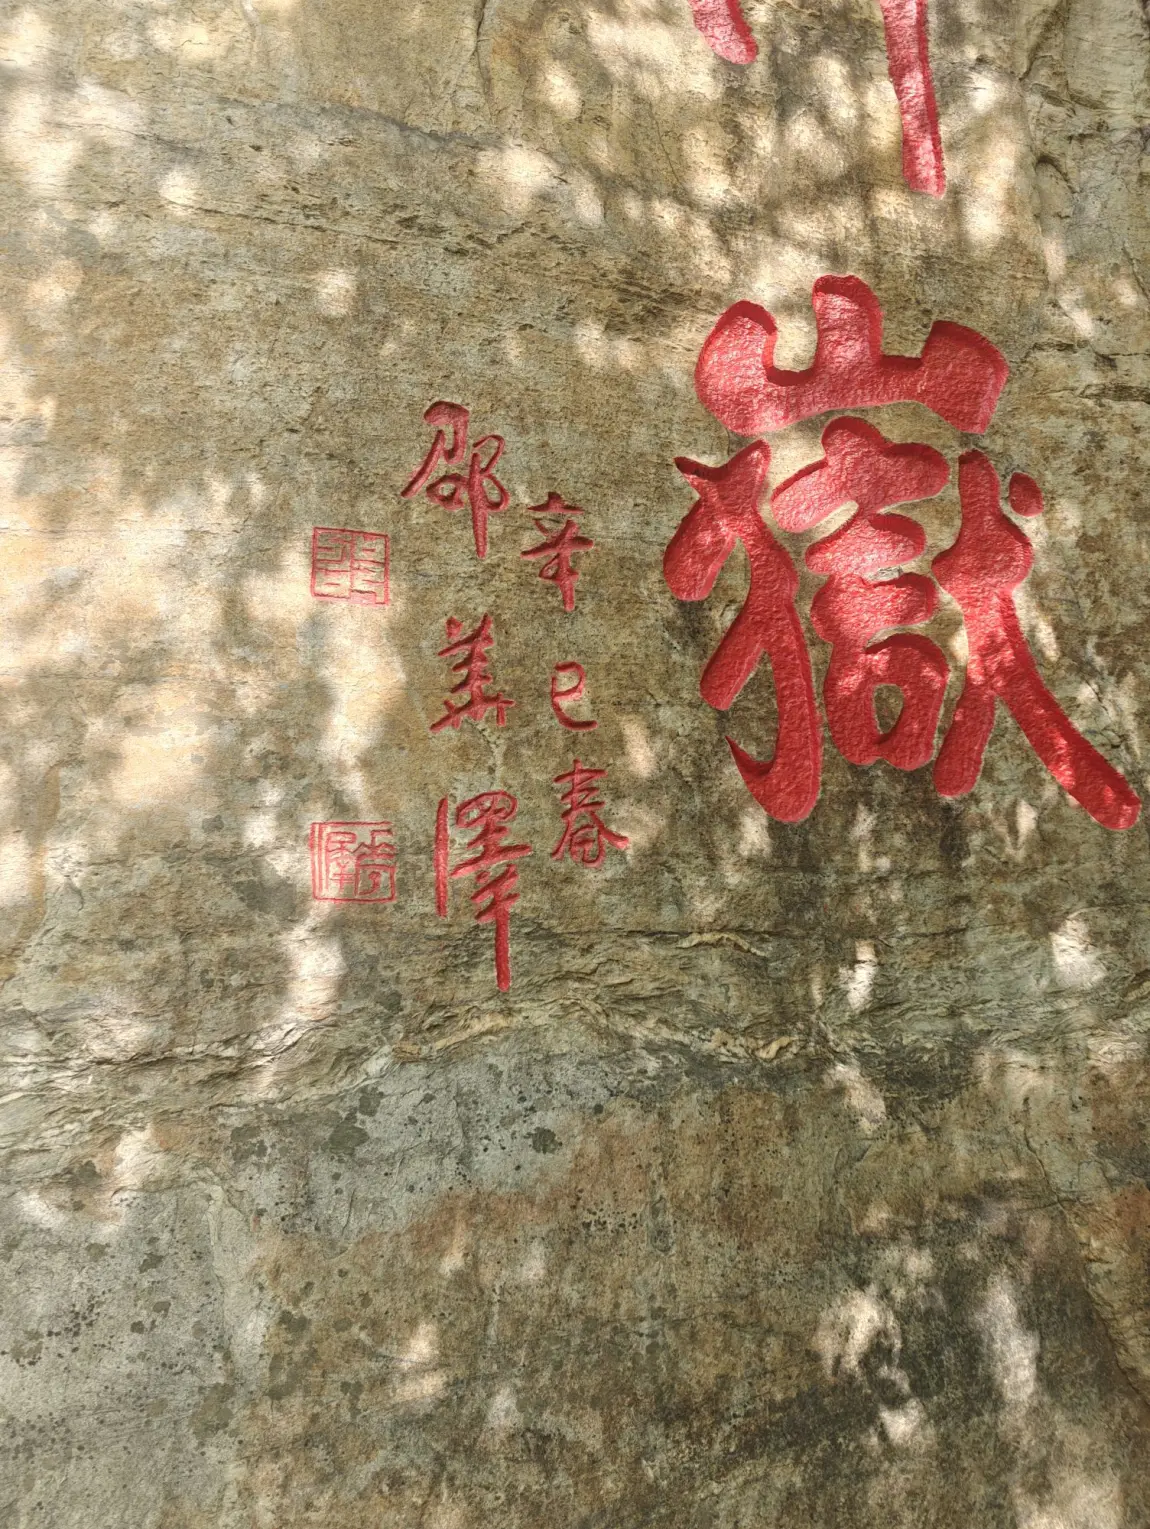 嶽
辛巳春
邵華澤